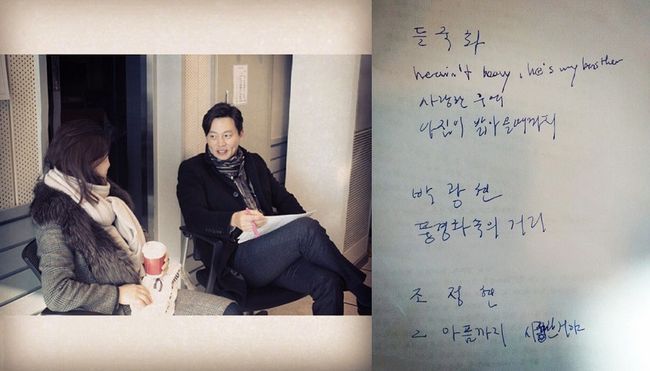 들국화
he ain't heavy, he's my brother
사랑한 후에
아침이 밝아올때까지
박광현
풍경화속의 거리
조정현
그 아픔까지 사랑한거야